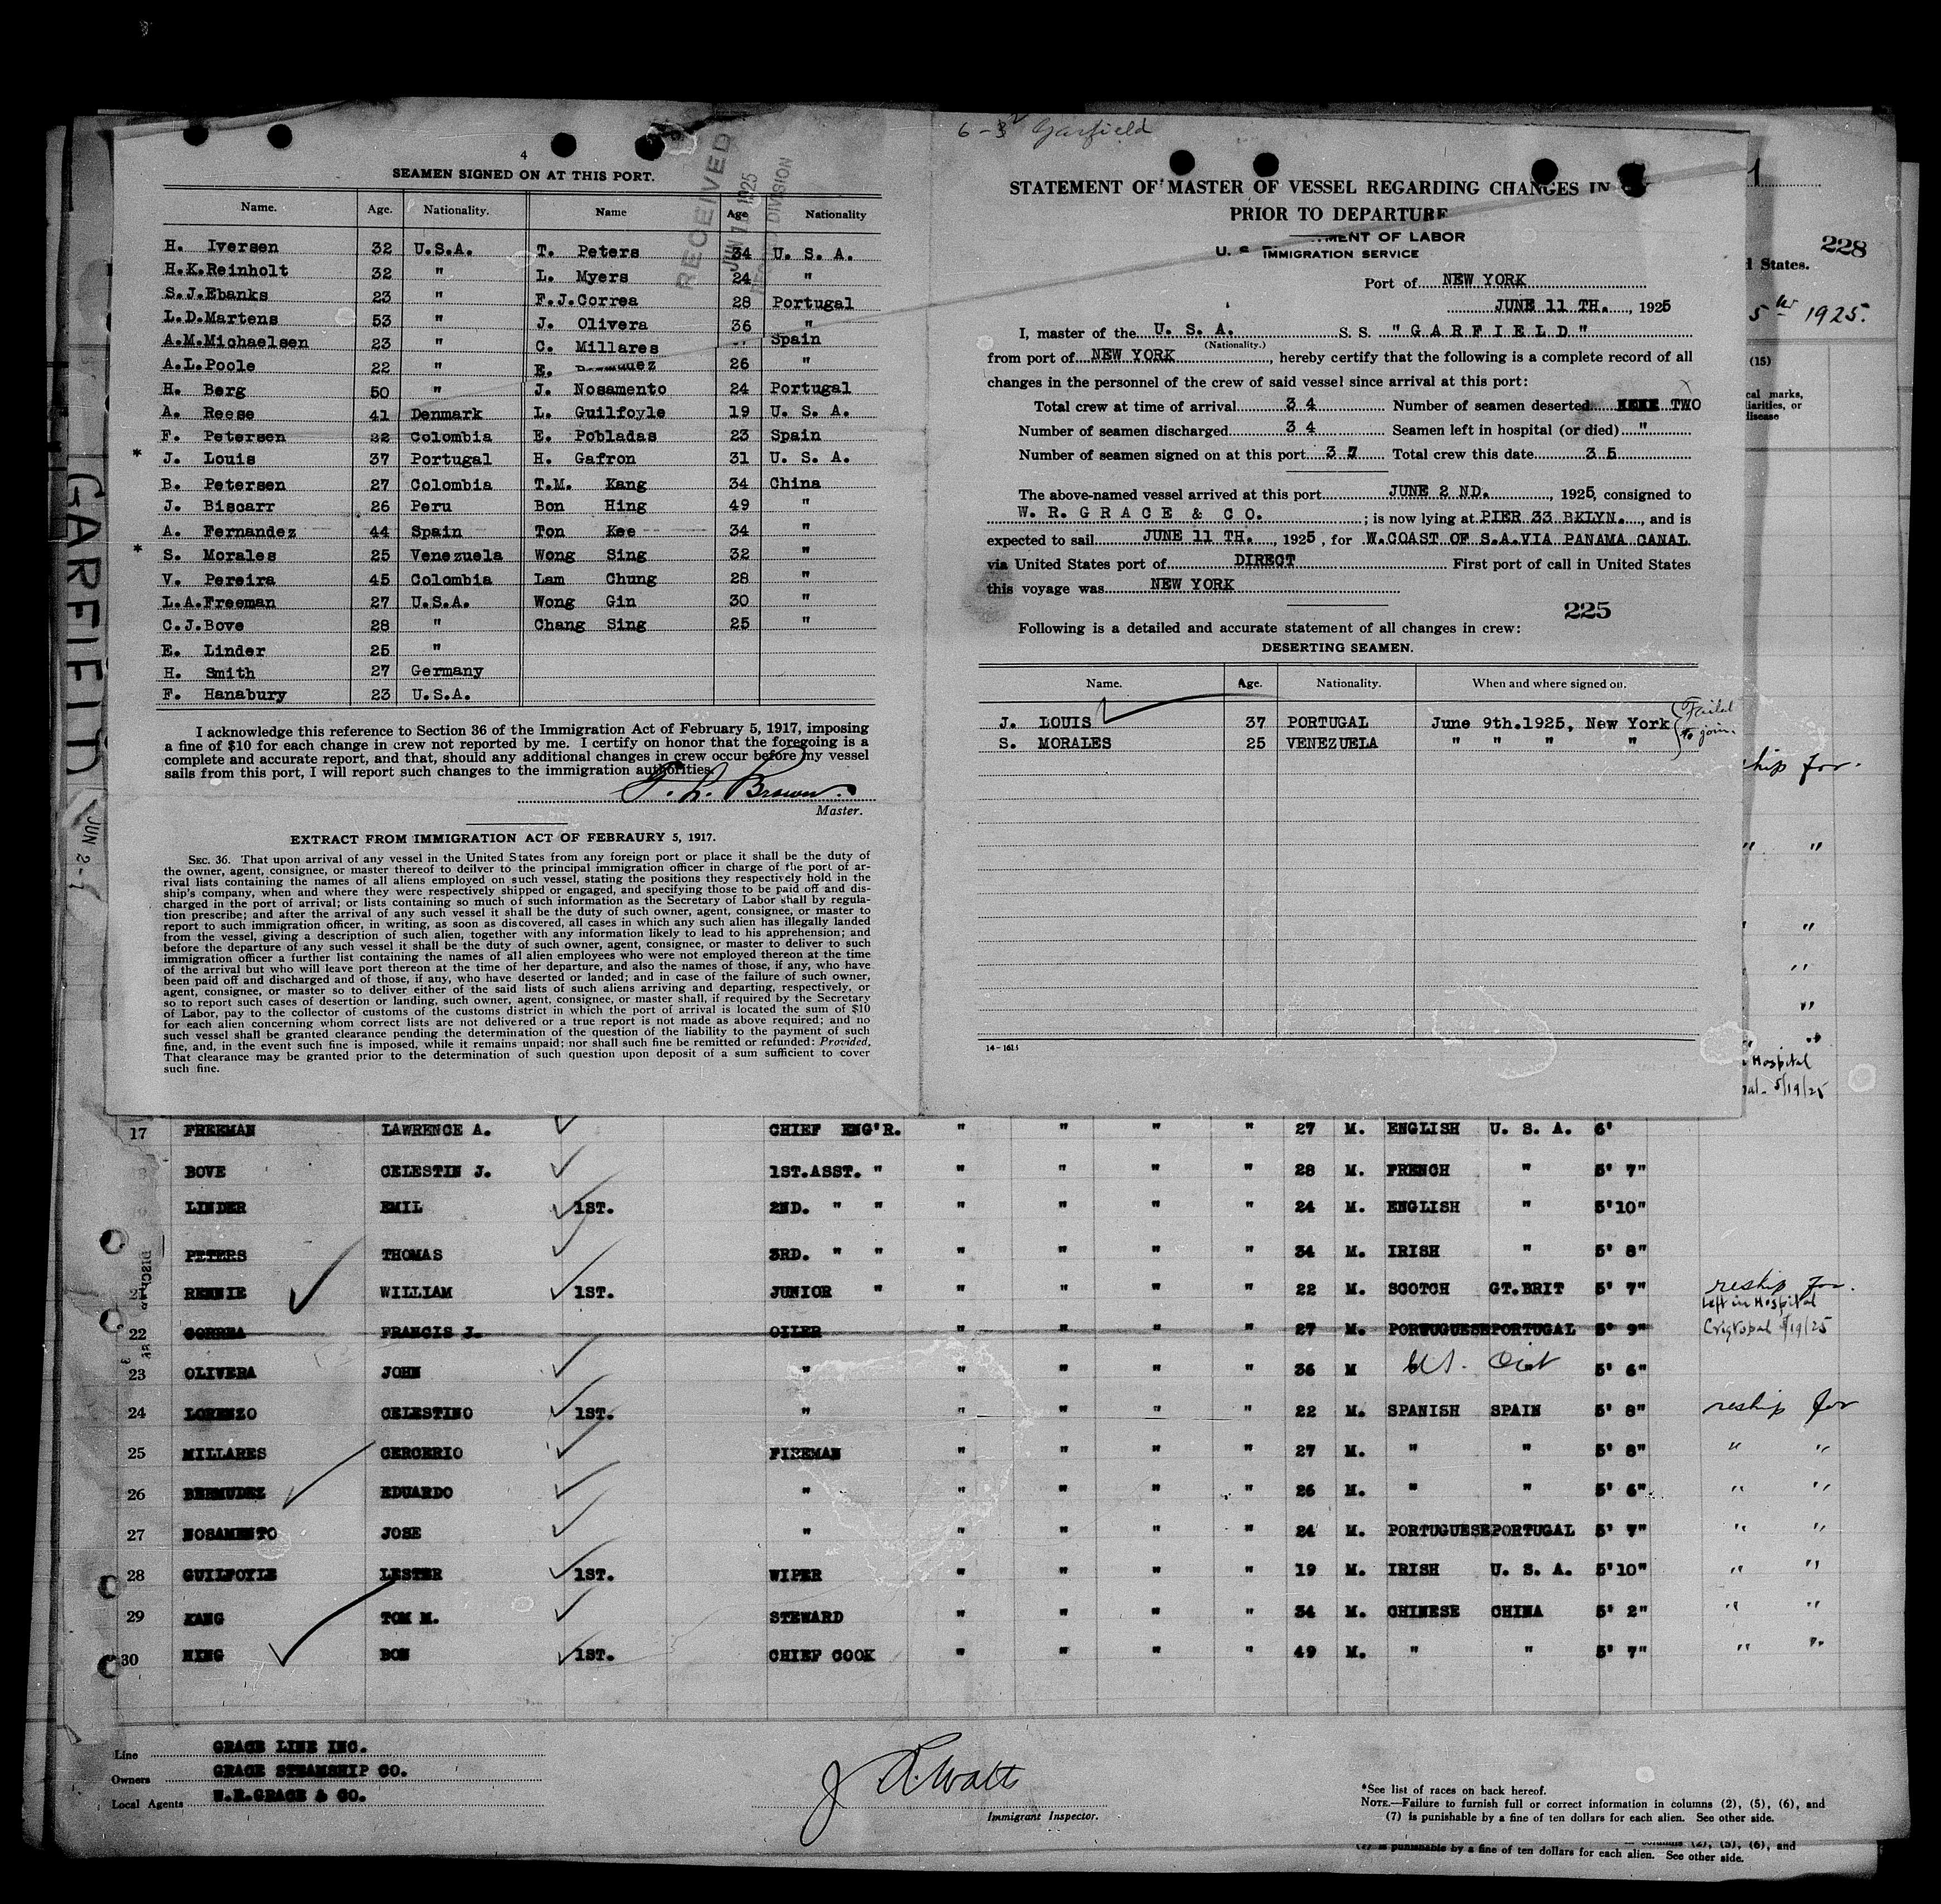 4
SEAMEN SIGNED ON AT THIS PORT.
Name. Age. Nationality. Name Age Nationality
H. Iversen 32 U.S.A. T. Peters 34 U. S. A.
H.K.Reinholt 32 " L. Myers 24 "
S.J.Ebanks 23 " F.J.Correa 28 Portugal
L.D.Martens 53 " J. Olivera 36 "
A.M.Michaelsen 23 " C. Millares Spain
A.L.Poole 22 " E. 26 "
H. Berg 50 " J. Nosamento 24 Portugal
A. Reese 41 Denmark L. Guilfoyle 19 U. S. A.
F. Petersen 22 Colombia E. Pobladas 23 Spain
* J. Louis 37 Portugal H. Gafron 31 U. S. A.
B. Petersen 27 Colombia T.M. Kang 34 China
J. Biscarr 26 Peru Bon Hing 49 "
A. Fernandez 44 Spain Ton Kee 34 "
* S. Morales 25 Venezuela Wong Sing 32 "
V. Pereira 45 Colombia Lam Chung 28 "
L.A.Freeman 27 U.S.A. Wong Gin 30 "
C.J.Bove 28 " Chang Sing 25 "
E. Linder 25 "
H. Smith 27 Germany
F. Hanabury 23 U.S.A.
RECEIVED
JUN 1925
DIVISION
I acknowledge this reference to Section 36 of the Immigration Act of February 5, 1917, imposing
a fine of $10 for each change in crew not reported by me. I certify on honor that the foregoing is a
complete and accurate report, and that, should any additional changes in crew occur before my vessel
sails from this port, I will report such changes to the immigration authorities.
Brown
Master.
EXTRACT FROM IMMIGRATION ACT OF FEBRAURY 5, 1917.
SEC. 36. That upon arrival of any vessel in the United States from any foreign port or place it shall be the duty of
the owner, agent, consignee, or master thereof to deilver to the principal immigration officer in charge of the port of ar-
rival lists containing the names of all aliens employed on such vessel, stating the positions they respectively hold in the
ship's company, when and where they were respectively shipped or engaged, and specifying those to be paid off and dis-
charged in the port of arrival; or lists containing so much of such information as the Secretary of Labor shall by regula-
tion prescribe; and after the arrival of any such vessel it shall be the duty of such owner, agent, consignee, or master to
report to such immigration officer, in writing, as soon as discovered, all cases in which any such alien has illegally landed
from the vessel, giving a description of such alien, together with any information likely to lead to his apprehension; and
before the departure of any such vessel it shall be the duty of such owner, agent, consignee, or master to deliver to such
immigration officer a further list containing the names of all alien employees who were not employed thereon at the time
of the arrival but who will leave port thereon at the time of her departure, and also the names of those, if any, who have
been paid off and discharged and of those, if any, who have deserted or landed; and in case of the failure of such owner,
agent, consignee, or master so to deliver either of the said lists of such aliens arriving and departing, respectively, or
so to report such cases of desertion or landing, such owner, agent, consignee, or master shall, if required by the Secretary
of Labor, pay to the collector of customs of the customs district in which the port of arrival is located the sum of $10
for each alien concerning whom correct lists are not delivered or a true report is not made as above required; and no
such vessel shall be granted clearance pending the determination of the question of the liability to the payment of such
fine, and, in the event such fine is imposed, while it remains unpaid; nor shall such fine be remitted or refunded: Provided,
That clearance may be granted prior to the determination of such question upon deposit of a sum sufficient to cover
such fine.
GARFIELD
JUN 2 -
Garfield
STATEMENT OF MASTER OF VESSEL REGARDING CHANGES IN
PRIOR TO DEPARTURE
OF LABOR
U. S. IMMIGRATION SERVICE
Port of NEW YORK
JUNE 11 TH. , 1925
I, master of the U. S. A. S. S. "GARFIELD"
(Nationality.)
from port of NEW YORK , hereby certify that the following is a complete record of all
changes in the personnel of the crew of said vessel since arrival at this port:
Total crew at time of arrival 34 Number of seamen deserted TWO
Number of seamen discharged 34 Seamen left in hospital (or died) "
Number of seamen signed on at this port 37 Total crew this date 35
The above-named vessel arrived at this port JUNE 2 ND. , 1925, consigned to
W. R. GRACE & CO. ; is now lying at PIER 33 BKLYN. , and is
expected to sail JUNE 11 TH. , 1925 , for W.COAST OF S.A.VIA PANAMA CANAL
via United States port of DIRECT First port of call in United States
this voyage was NEW YORK
225
Following is a detailed and accurate statement of all changes in crew:
DESERTING SEAMEN.
Name. Age. Nationality. When and where signed on.
J. LOUIS 37 PORTUGAL June 9th.1925, New York Failed
S. MORALES 25 VENEZUELA " " " " to join.
14-1611
1
228
States.
5 1925.
(15)
marks,
or
disease
ship for.
" "
"
"
"
" "
Hospital
5/19/25
17 FREEMAN LAWRENCE A. CHIEF ENG'R. " " " " 27 M. ENGLISH U. S. A. 6'
BOVE CELESTIN J. 1ST.ASST. " " " " " 28 M. FRENCH " 5' 7"
LINDER EMIL 1ST. 2ND. " " " " " " 24 M. ENGLISH " 5'10"
PETERS THOMAS 3RD. " " " " " " 34 M. IRISH " 5' 8"
21 RENNIE WILLIAM 1ST. JUNIOR " " " " " 22 M. SCOTCH GT.BRIT 5' 7" reship for.
Left in Hospital
22 CORREA FRANCIS J. OILER " " " " 27 M. PORTUGUESE PORTUGAL 5' 9" Cristobal 5/19/25
23 OLIVERA JOHN " " " " " 36 M 5' 6"
24 LORENZO CELESTINO 1ST. " " " " " 22 M. SPANISH SPAIN 5' 8" reship for
25 MILLARES CERCERIO FIREMAN " " " " 27 M. " " 5' 8" " "
26 BERMUDEZ EDUARDO " " " " " 26 M. " " 5' 6" " "
27 NOSAMENTO JOSE " " " " " 24 M. PORTUGUESE PORTUGAL 5' 7" " "
28 GUILFOYLE LESTER 1ST. WIPER " " " " 19 M. IRISH U. S. A. 5'10" " "
29 KANG TOM M. STEWARD " " " " 34 M. CHINESE CHINA 5' 2" " "
30 HING BON 1ST. CHIEF COOK " " " " 49 M. " " 5' 7" " "
Line GRACE LINE INC.
Owners GRACE STEAMSHIP CO.
Local Agents W.R.GRACE & CO.
J A Watts
Immigrant Inspector.
*See list of races on back hereof.
NOTE.—Failure to furnish full or correct information in columns (2), (5), (6), and
(7) is punishable by a fine of ten dollars for each alien. See other side.
columns (2), (5), (6), and
(7) is punishable by a fine of ten dollars for each alien. See other side.